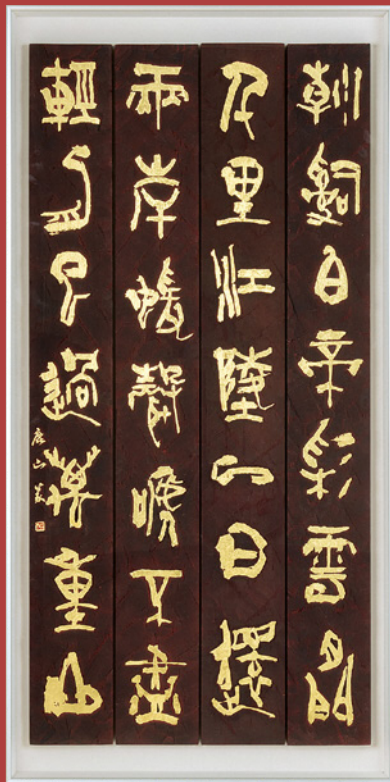 朝辭白帝彩雲間
千里江陵一日還
兩岸蝯聲啼不盡
輕舟已過萬重山